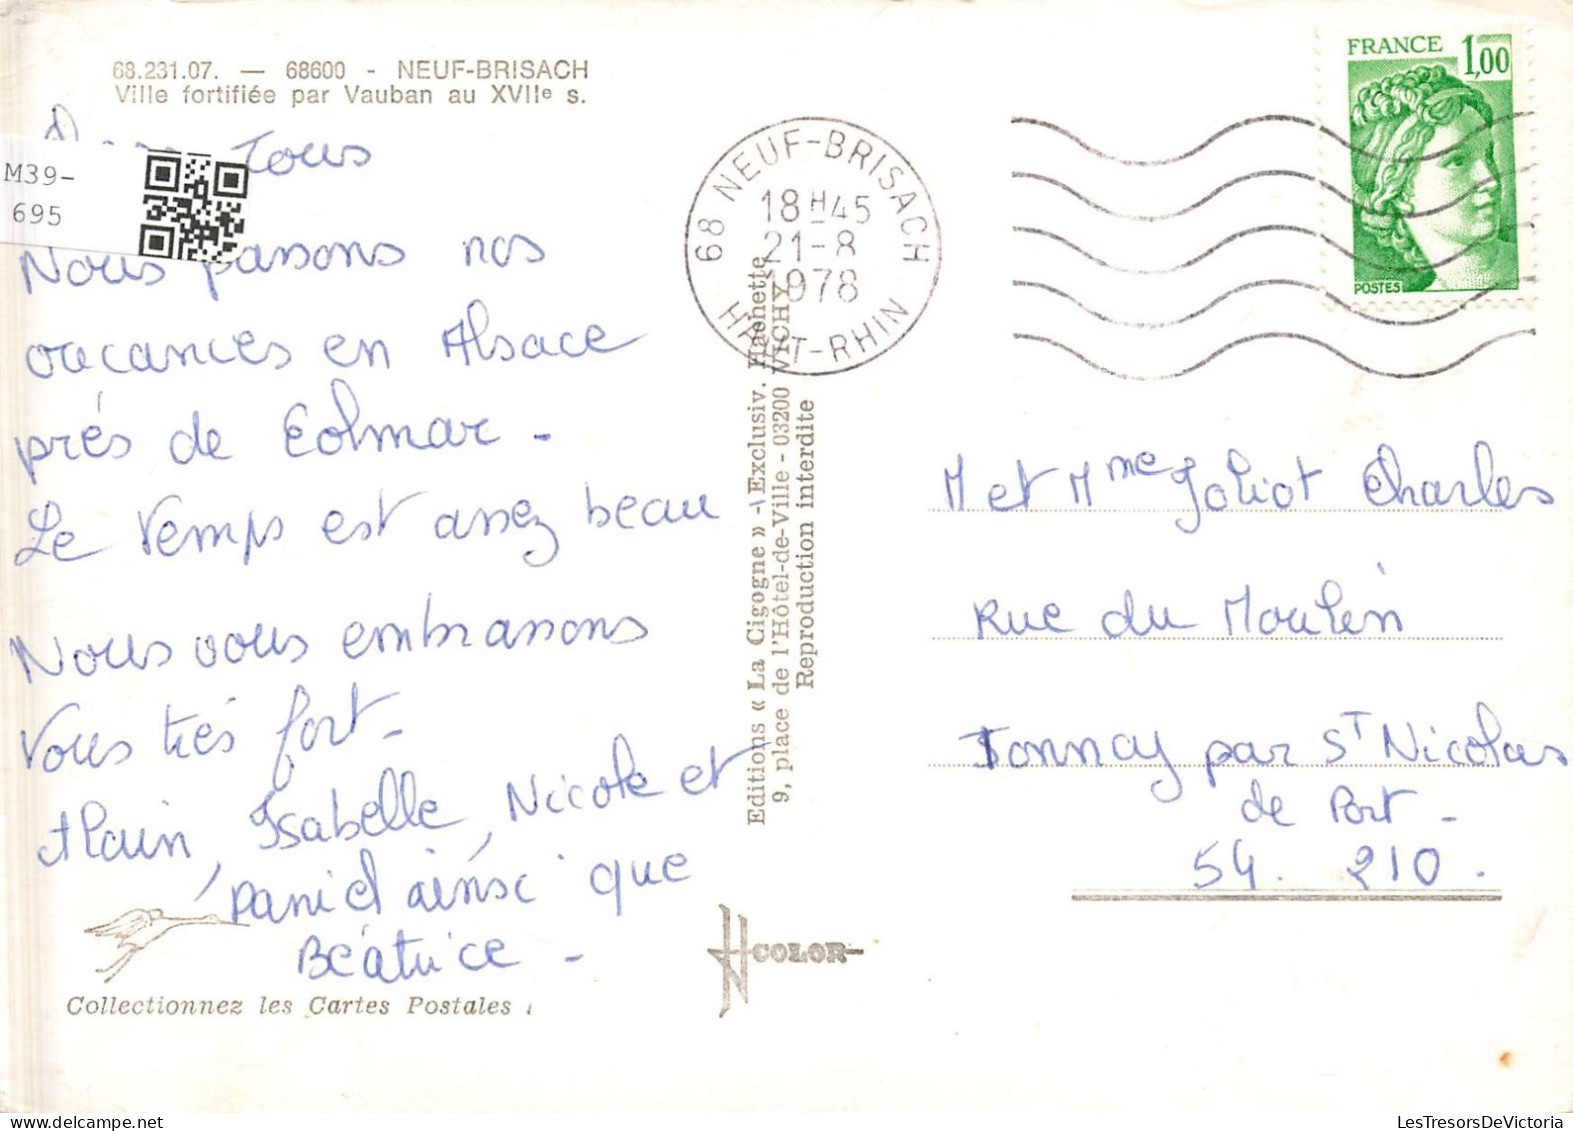 68.231.07. — 68600 - NEUF-BRISACH
Ville fortifiée par Vauban au XVIIe s.
tous
M39-
695
Nous passons nos
vacances en Alsace
près de Colmar -
Le temps est assez beau
Nous vous embrassons
vous très fort -
Alain, Isabelle, Nicole et
Daniel ainsi que
Béatrice -
Collectionnez les Cartes Postales
Editions « La Cigogne » - Exclusiv. Hachette
9, place de l'Hôtel-de-Ville - 03200 VICHY
Reproduction interdite
COLOR
68 NEUF-BRISACH
18H45
21-8
1978
HAUT-RHIN
FRANCE 1,00
POSTES
M et Mme Joliot Charles
Rue du Moulin
Tonnoy par St Nicolas
de Port -
54. 210.
LesTresorsDeVictoria.com